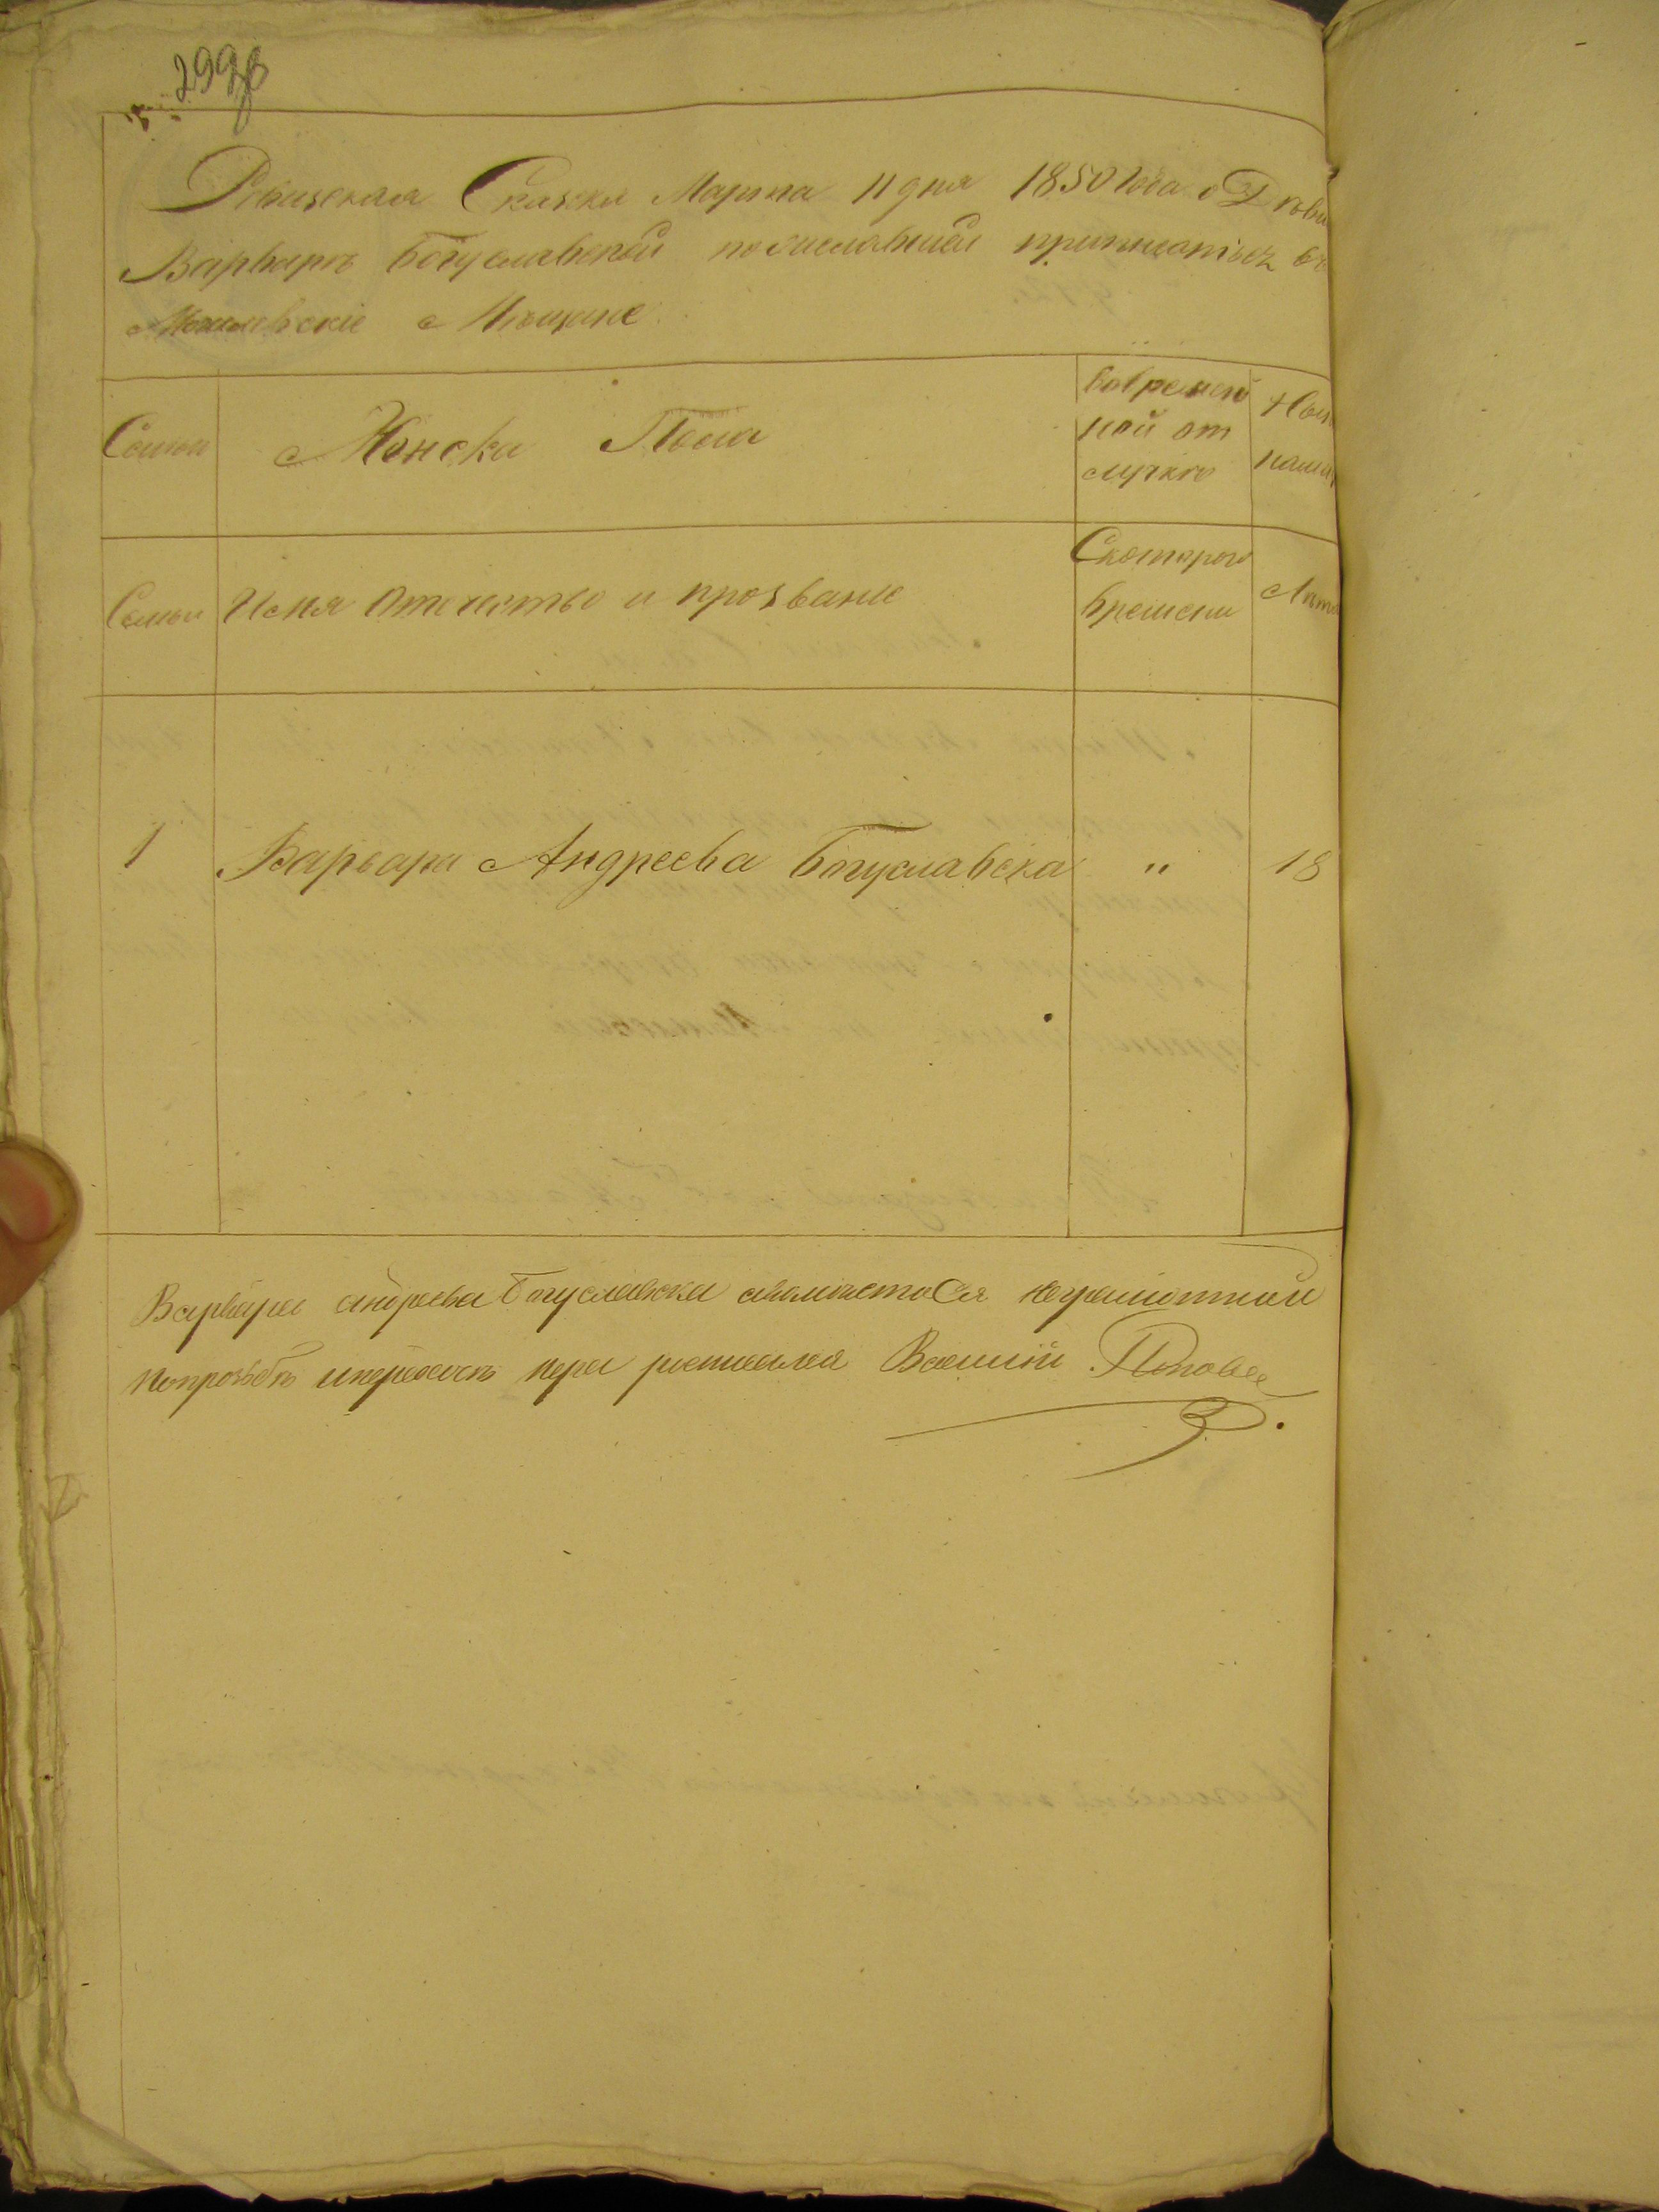 299
Ревизская Сказка Марта 11 дня 1850 года о Дѣви
Варваре Богуславской пожелавшей приписатьса въ
Могилевскіе Мѣщане
Семьи
Женска Пола
Вовремен
ной от
лучке
Семьи
Имя Отечество и прозвание
Скоторого
времени
Лѣта
1
Варвара Андреева Богуславска
"
18
Варвара андреева Богуславска неграмотной
попрозьбѣ росписалса Василій Попове